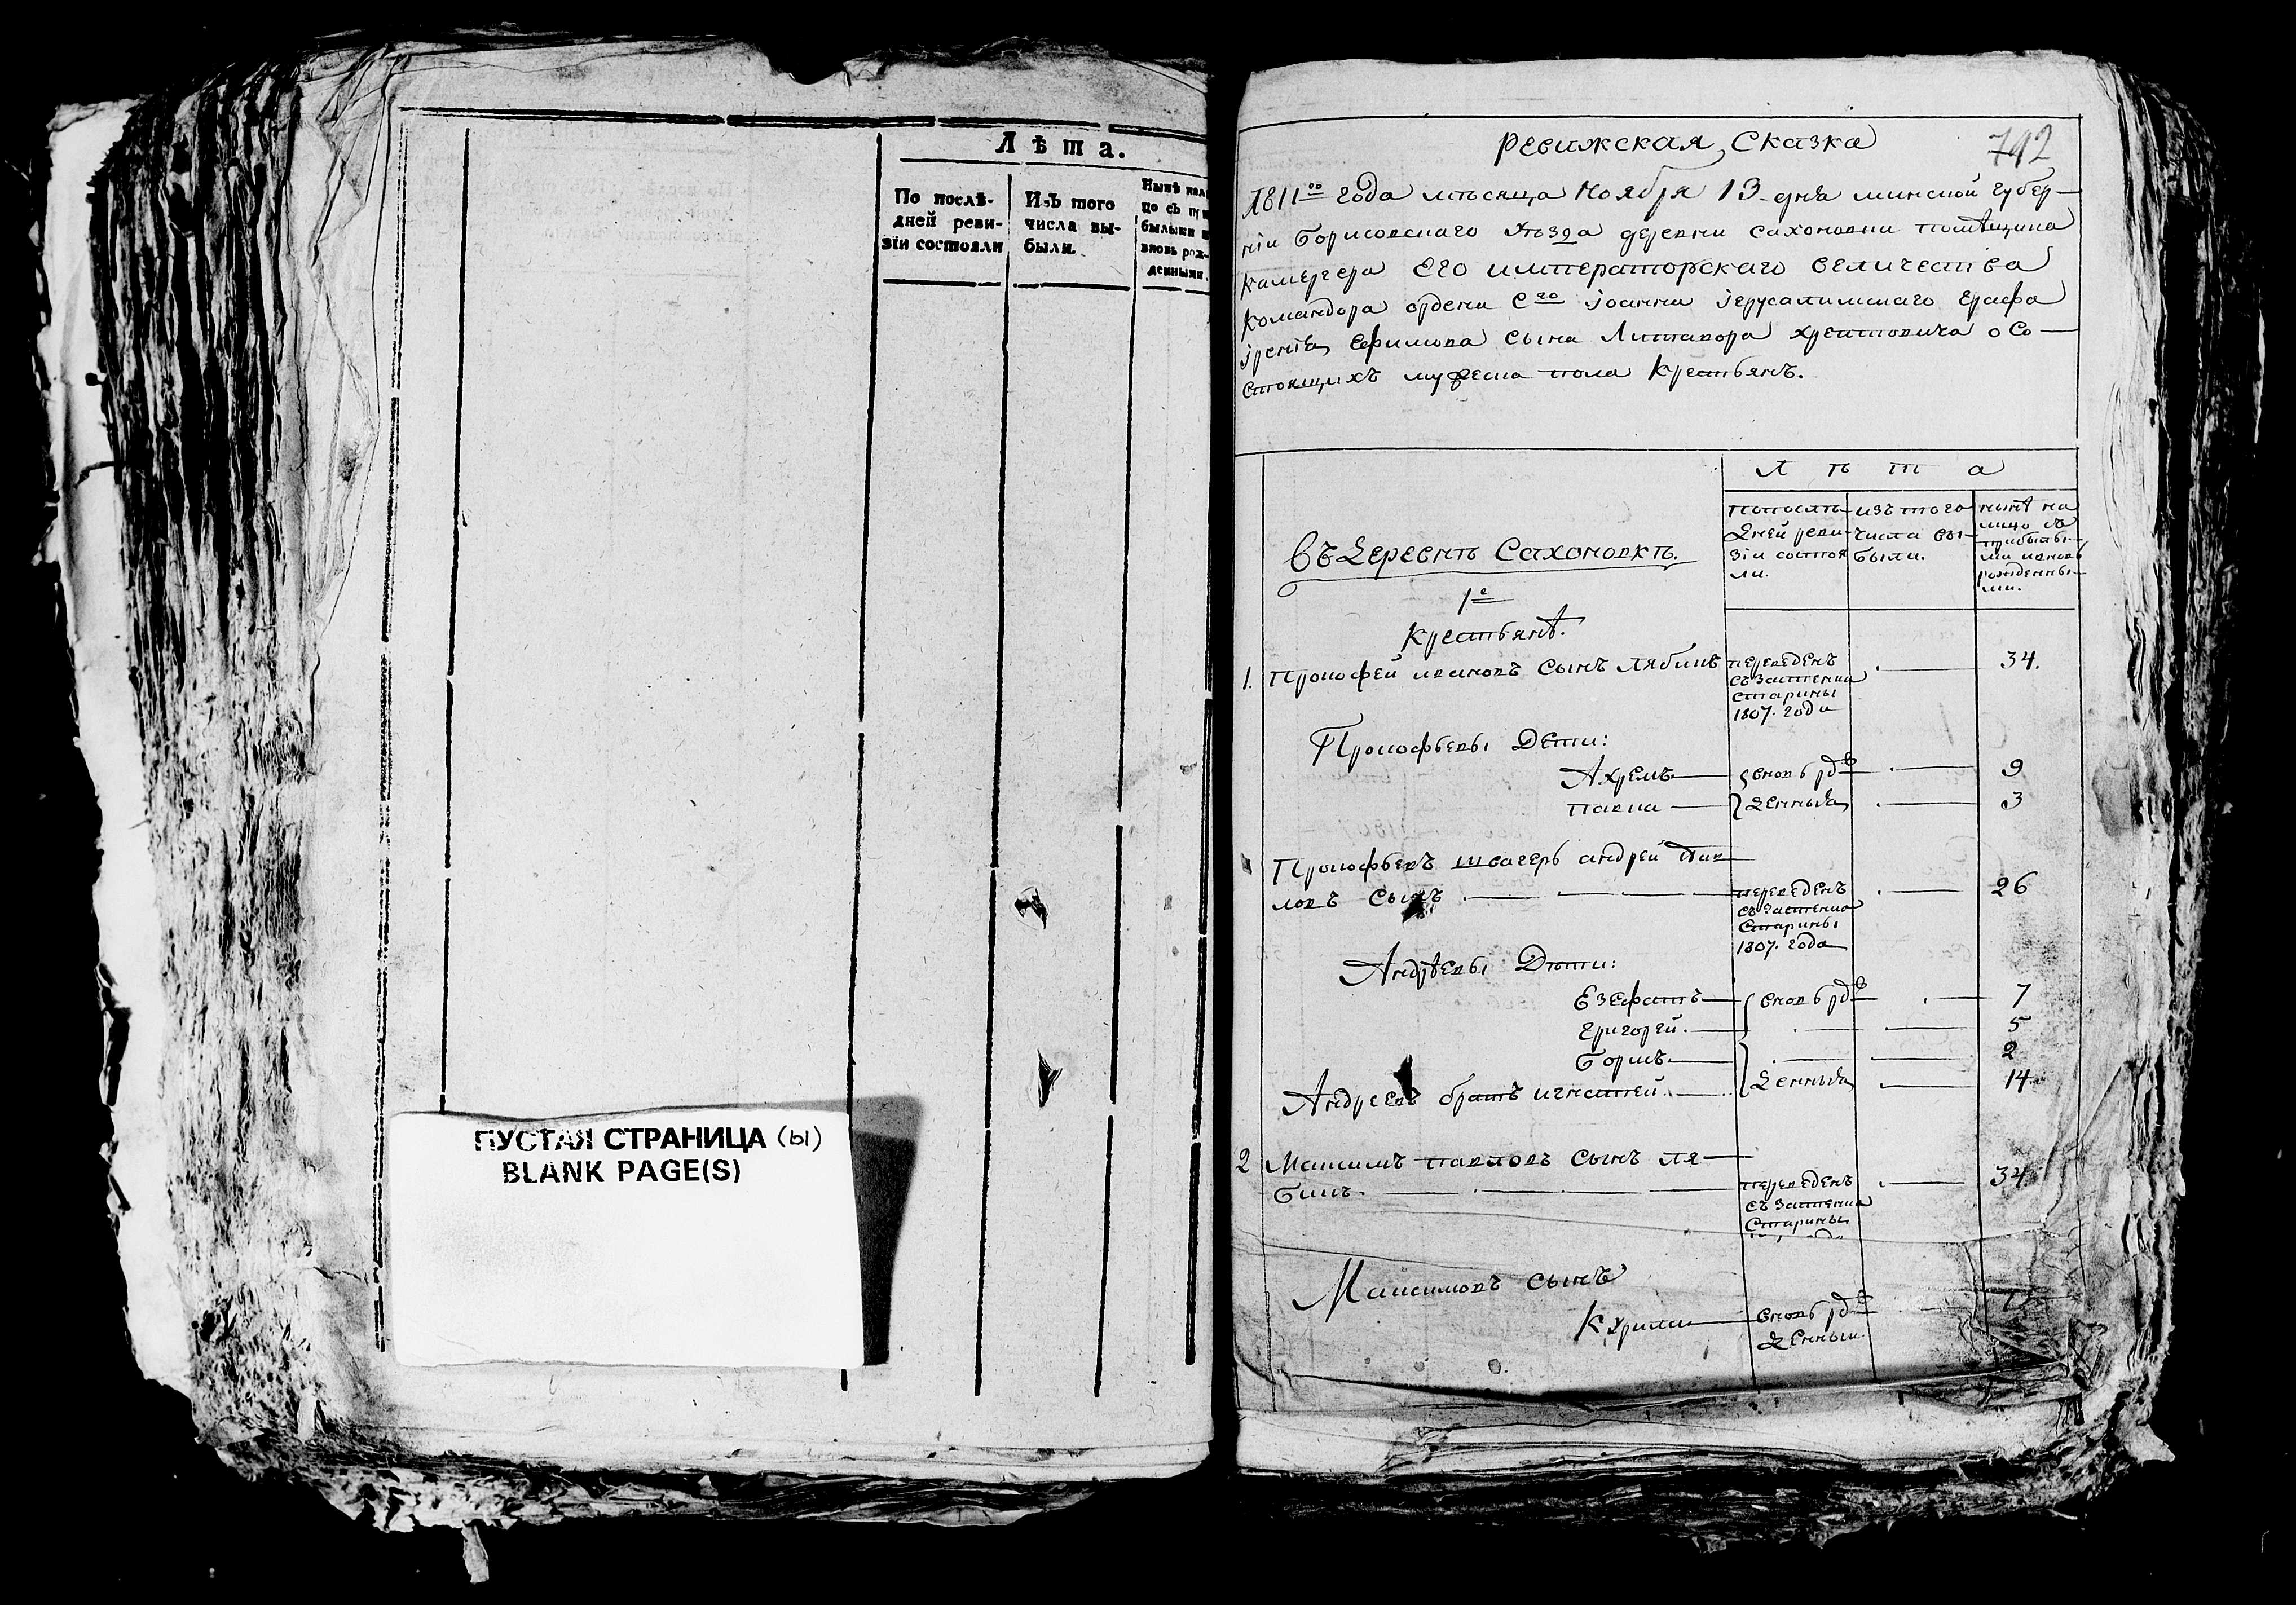 Лѣта.
По послѣ-
дней реви-
зіи состояли
Изъ того
числа вы-
были.
Нынѣ
вновь рож-
денными.
ПУСТАЯ СТРАНИЦА (ы)
BLANK PAGE(S)
Ревижская Сказка
792
1811го года мѣсяца Ноября 13 дня минской губер-
ніи Борисовскаго уѣзда деревни сахоновки помѣщика
камергера Его императорскаго величества
командора ордена Сго іоанна іерусалимскаго графа
Ефимова сына Литавора хрептовича о со-
стоящихъ мужеска пола крестьянъ.
Лѣта
попослѣ-
дней реви-
зіи состоя
ли.
изъ того
числа вы-
были.
нынѣ на
лицо съ
прибылы-
ми ивновь
рожденны-
ми.
Въ Деревнѣ Сахоновкѣ.
1е
Крестьянѣ.
1. Прокофей ивановъ сынъ лябикъ
переведенъ
съ Застенка
старины
1807. года
34.
Прокофьевы Дети:
Ахремъ вновь рож 9
павла денныя 3
Прокофьевъ швагеръ андрей пав
ловъ сынъ
переведенъ
съ Застенка
Старины
1807. года
26
Андрѣевы Дѣти:
Езефатъ вновь рож 7
григорей. 5
борисъ 2
Андреевъ братъ игнатей. денныя 14
2 Максимъ павловъ сынъ ля-
бикъ.
переведенъ
съ Застенка
Старины
34
Максимовъ сынъ
Курило вновь рож
денный.